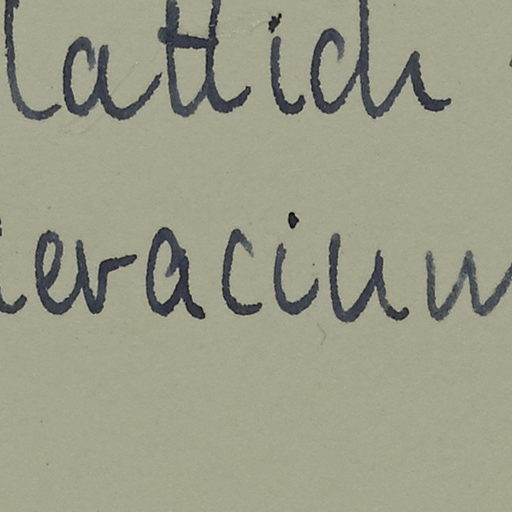 lattich
ieracium